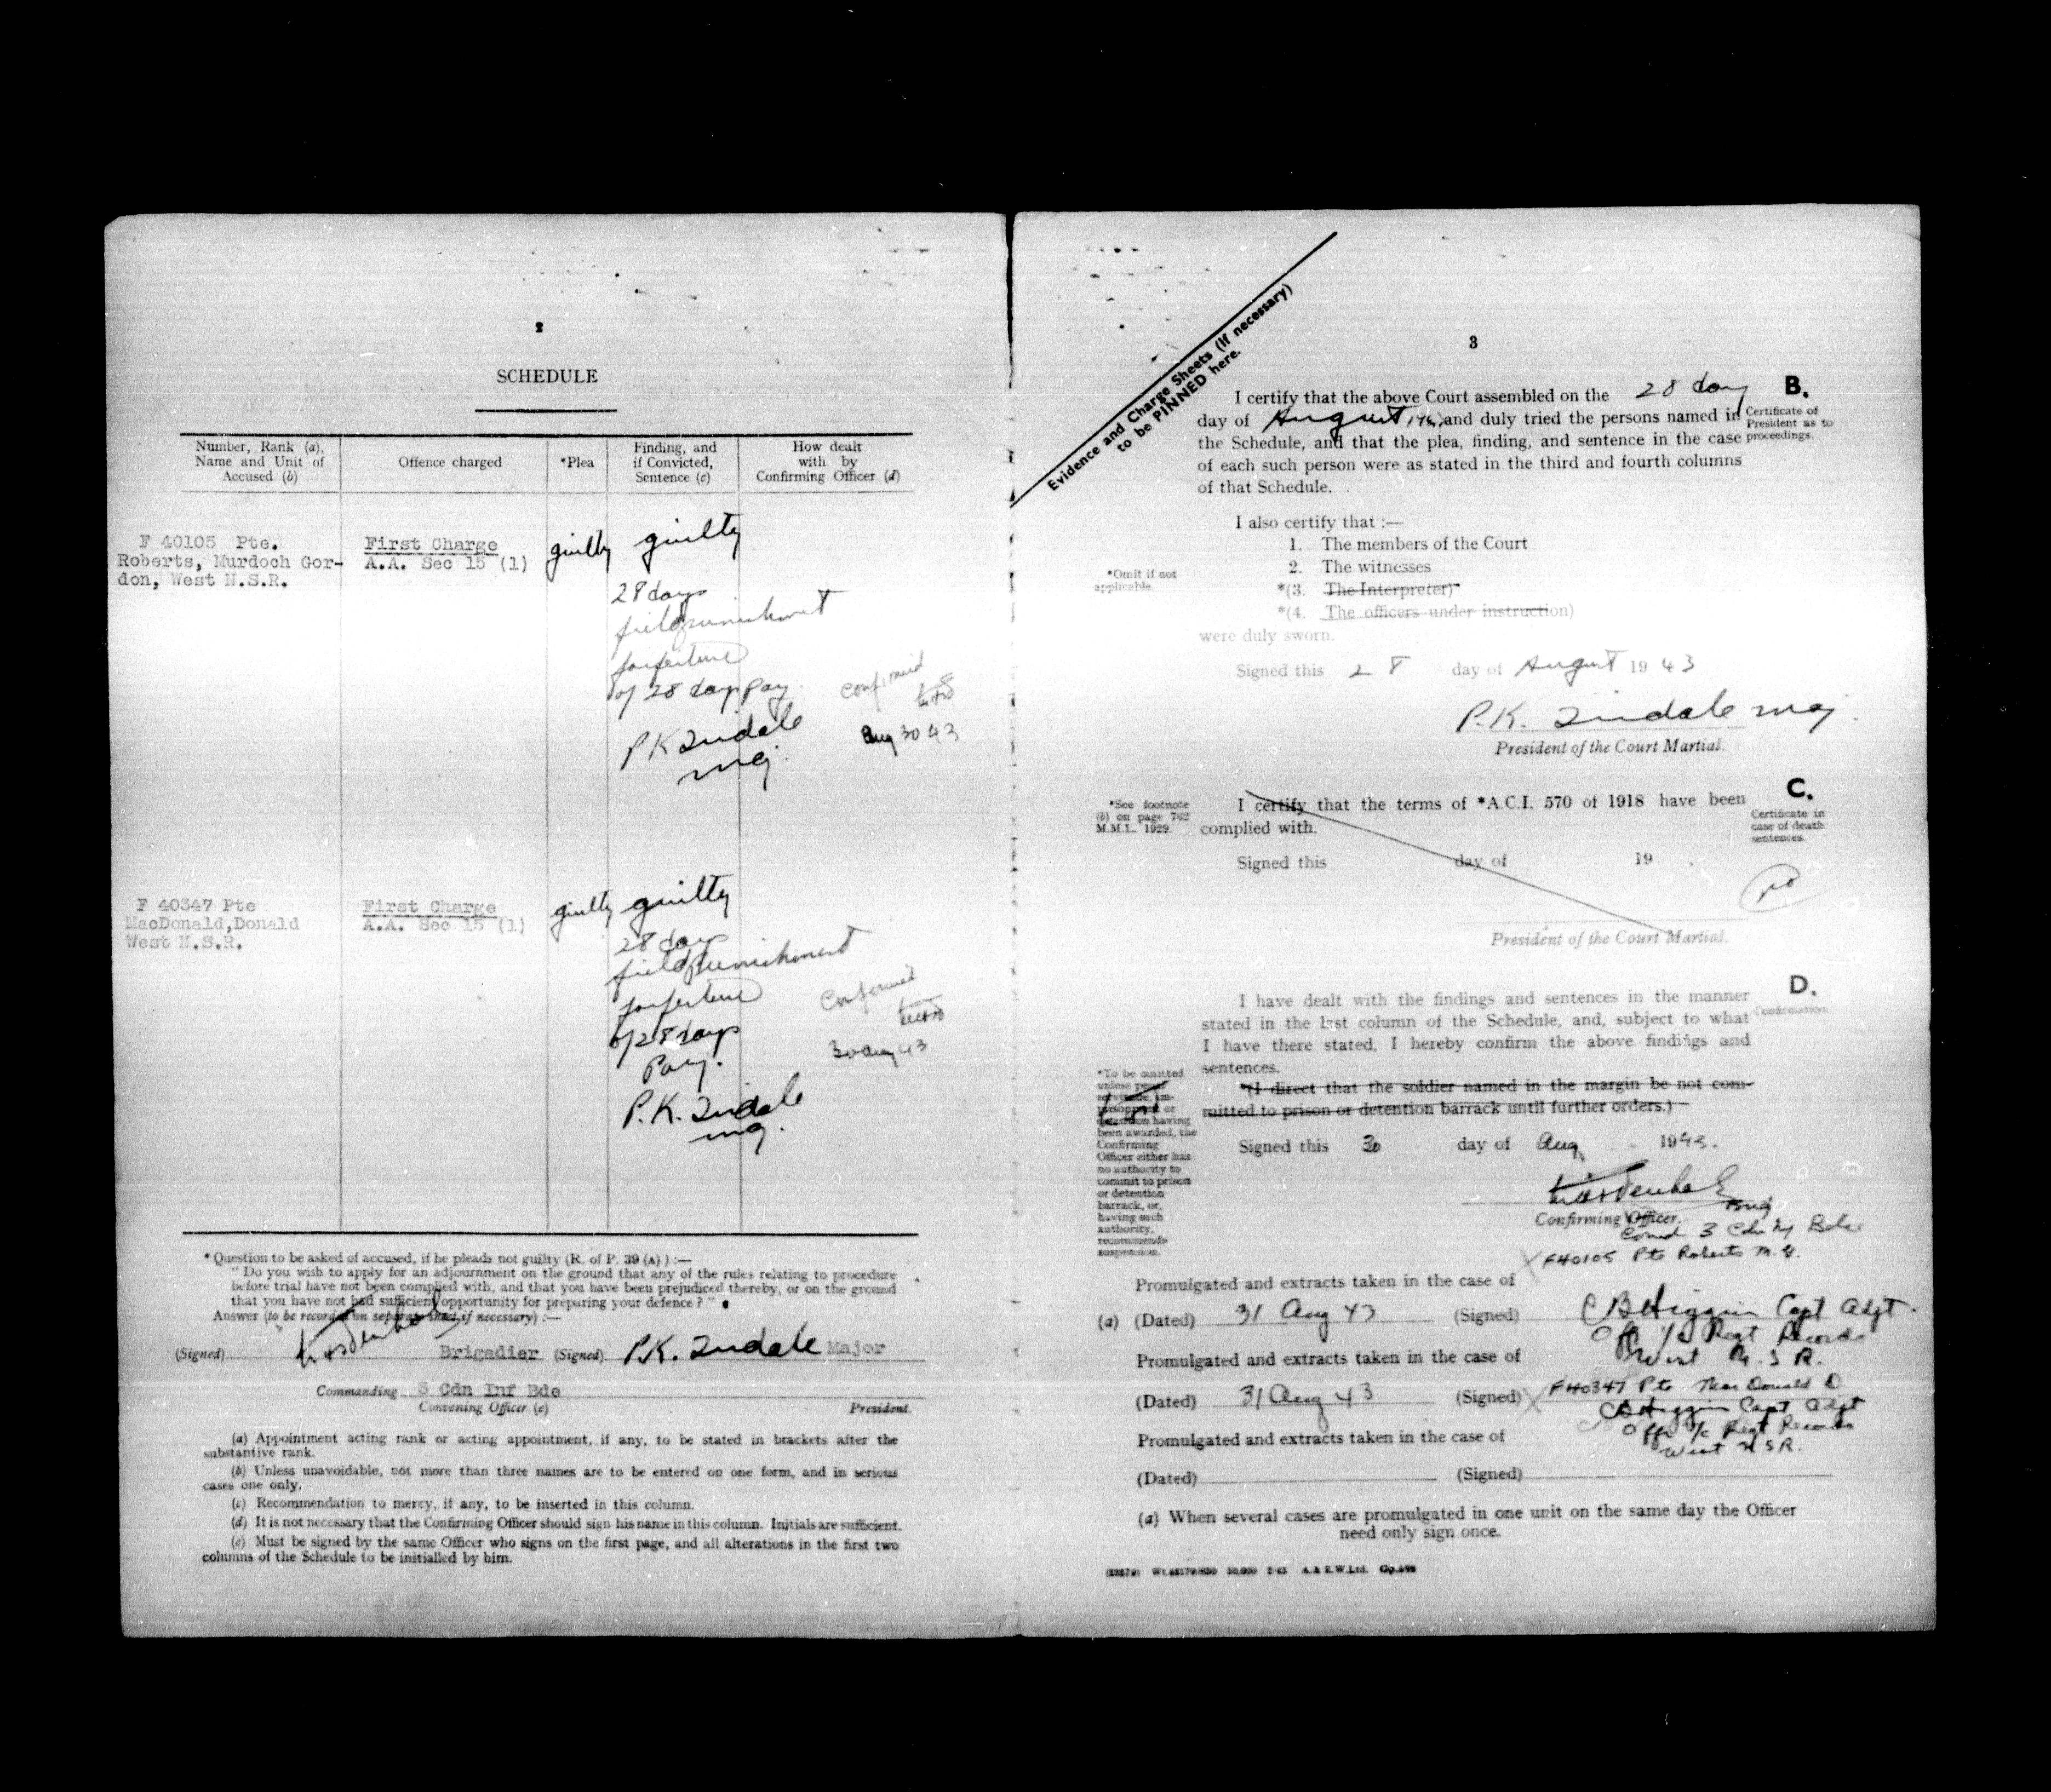 2
SCHEDULE
Number, Rank (a),
Name and Unit of
Accused (b)
Offence charged
*Plea
Finding, and
if Convicted,
Sentence (c)
How dealt
with by
Confirming Officer (d)
F 40105 Pte.
Roberts, Murdoch Gor-
don, West N.S.R.
First Charge
A.A. Sec 15 (1)
guilty
guilty
28 days
field punishment
forfeiture
of 28 days pay
P K Tindale
maj.
Confirmed
Aug 30 43
F 40347 Pte
MacDonald,Donald
West N.S.R.
First Charge
A.A. Sec 15 (1)
guilty
guilty
28 days
field punishment
forfeiture
of 28 days
Pay.
P.K. Tindale
maj.
Confirmed
30 Aug 43
* Question to be asked of accused, if he pleads not guilty (R. of P. 39 (A) ) :—
" Do you wish to apply for an adjournment on the ground that any of the rules relating to procedure
before trial have not been complied with, and that you have been prejudiced thereby, or on the ground
that you have not had sufficient opportunity for preparing your defence ? "
Answer (to be recorded on separate sheet if necessary) :—
(Signed) Brigadier (Signed) P.K. Tindale Major
Commanding 3 Cdn Inf Bde
Convening Officer (e) President.
(a) Appointment acting rank or acting appointment, if any, to be stated in brackets after the
substantive rank.
(b) Unless unavoidable, not more than three names are to be entered on one form, and in serious
cases one only.
(c) Recommendation to mercy, if any, to be inserted in this column.
(d) It is not necessary that the Confirming Officer should sign his name in this column. Initials are sufficient.
(e) Must be signed by the same Officer who signs on the first page, and all alterations in the first two
columns of the Schedule to be initialled by him.
Evidence and Charge Sheets (if necessary)
to be PINNED here.
3
I certify that the above Court assembled on the 28 day
day of August and duly tried the persons named in
the Schedule, and that the plea, finding, and sentence in the case
of each such person were as stated in the third and fourth columns
of that Schedule.
B.
Certificate of
President as to
proceedings.
I also certify that :—
1. The members of the Court
2. The witnesses
*(3. The Interpreter)
*(4. The officers under instruction)
were duly sworn.
*Omit if not
applicable.
Signed this 28 day of August 19 43
P.K. Tindale maj.
President of the Court Martial.
*See footnote
(b) on page 762
M.M.L. 1929.
I certify that the terms of *A.C.I. 570 of 1918 have been
complied with.
C.
Certificate in
case of death
sentences.
Signed this day of 19 .
President of the Court Martial.
D.
Confirmation.
I have dealt with the findings and sentences in the manner
stated in the last column of the Schedule, and, subject to what
I have there stated, I hereby confirm the above findings and
sentences.
*(I direct that the soldier named in the margin be not com-
mitted to prison or detention barrack until further orders.)
*To be omitted
unless penal
servitude, im-
prisonment or
detention having
been awarded, the
Confirming
Officer either has
no authority to
commit to prison
or detention
barrack, or,
having such
authority,
recommends
suspension.
Signed this 30 day of Aug 1943.
Brig
Confirming Officer.
Comd 3 Cdn Inf Bde
F40105 Pte Roberts M.G.
Promulgated and extracts taken in the case of
(a) (Dated) 31 Aug 43 (Signed) C B Higgins Capt Adjt
Offr i/c Regt Records
West N.S.R.
Promulgated and extracts taken in the case of
F40347 Pte MacDonald D
(Dated) 31 Aug 43 (Signed) C B Higgins Capt Adjt
Offr i/c Regt Records
West N S R.
Promulgated and extracts taken in the case of
(Dated) (Signed)
(a) When several cases are promulgated in one unit on the same day the Officer
need only sign once.